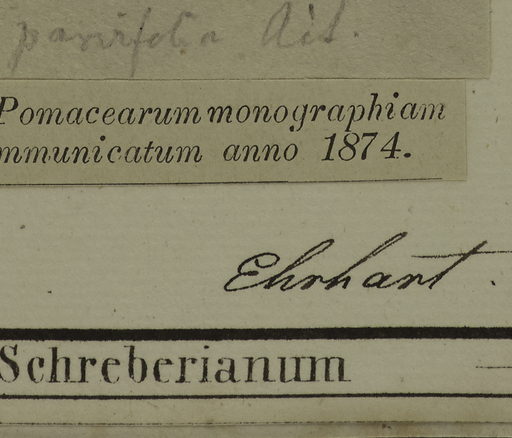 parvifolia Ait.
Pomacearum monographiam
mmunicatum anno 1874.
Ehrhart.
Schreberianum